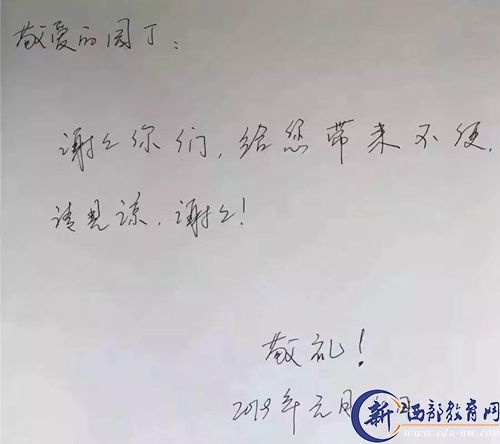 敬爱的园丁：
谢谢你们，给您带来不便，
请见谅，谢谢！
敬礼！
2019年元月
新 西部教育网
www.edu-nw.com